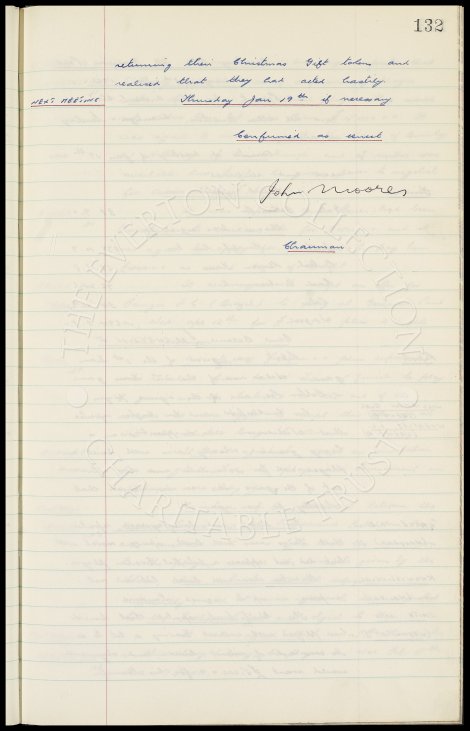 132
returning their Christmas Gift tokens and
realised that they had acted hastily.
NEXT MEETING Thursday Jan 19th if necessary
Confirmed as correct
John Moores
Chairman
THE EVERTON COLLECTION
CHARITABLE TRUST